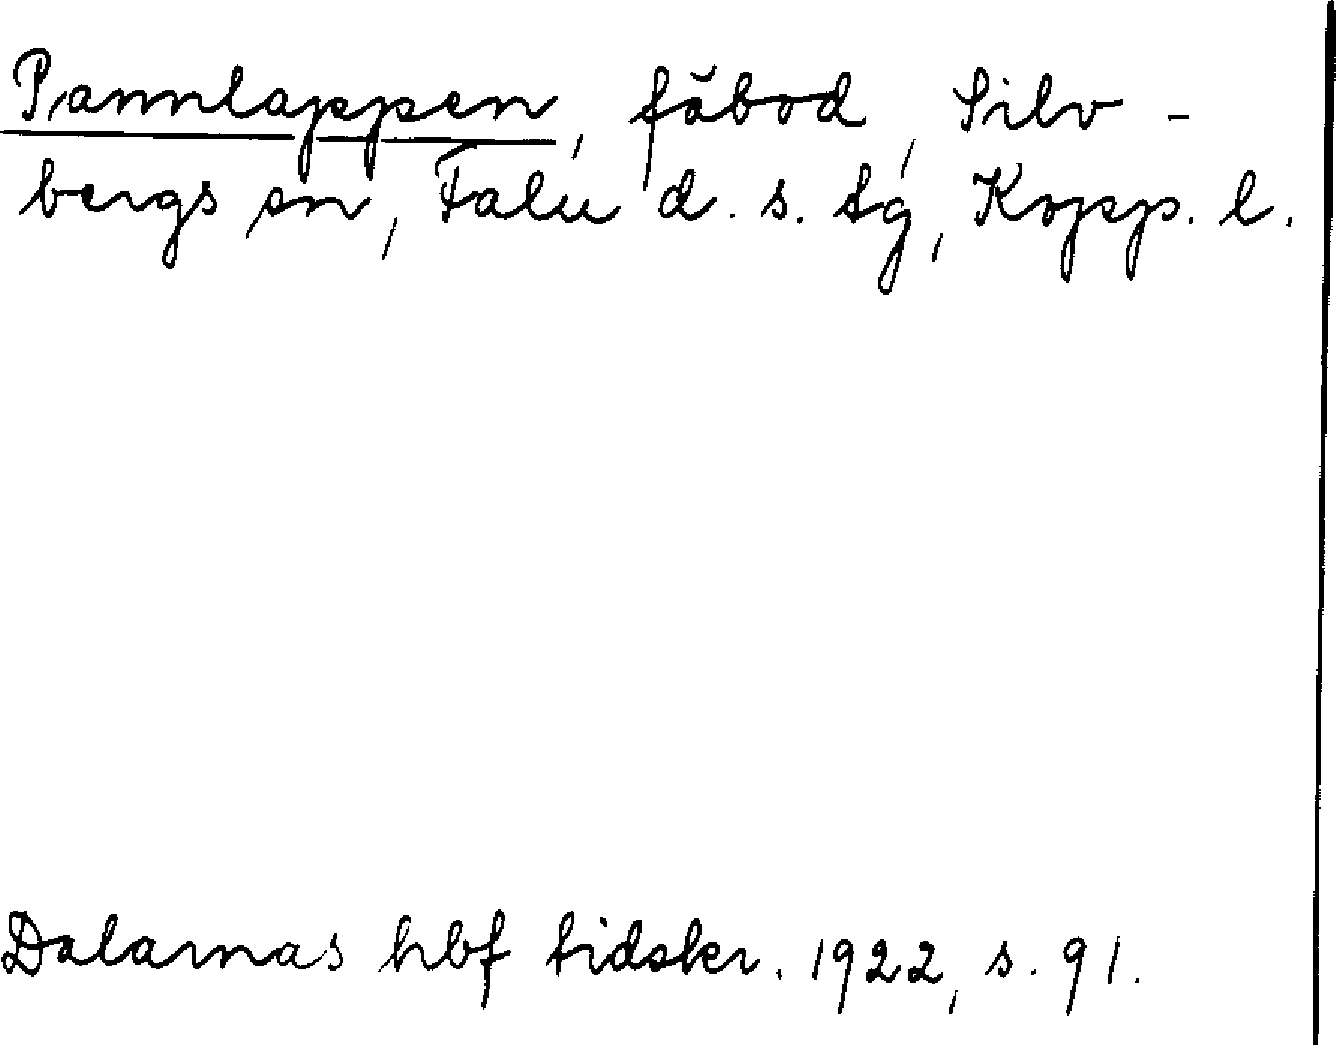 Pannlappen, fäbod, Silv-
bergs sn, Falu d. s. tg, Kopp. l.
Dalarnas hbf tidskr. 1922, s. 91.